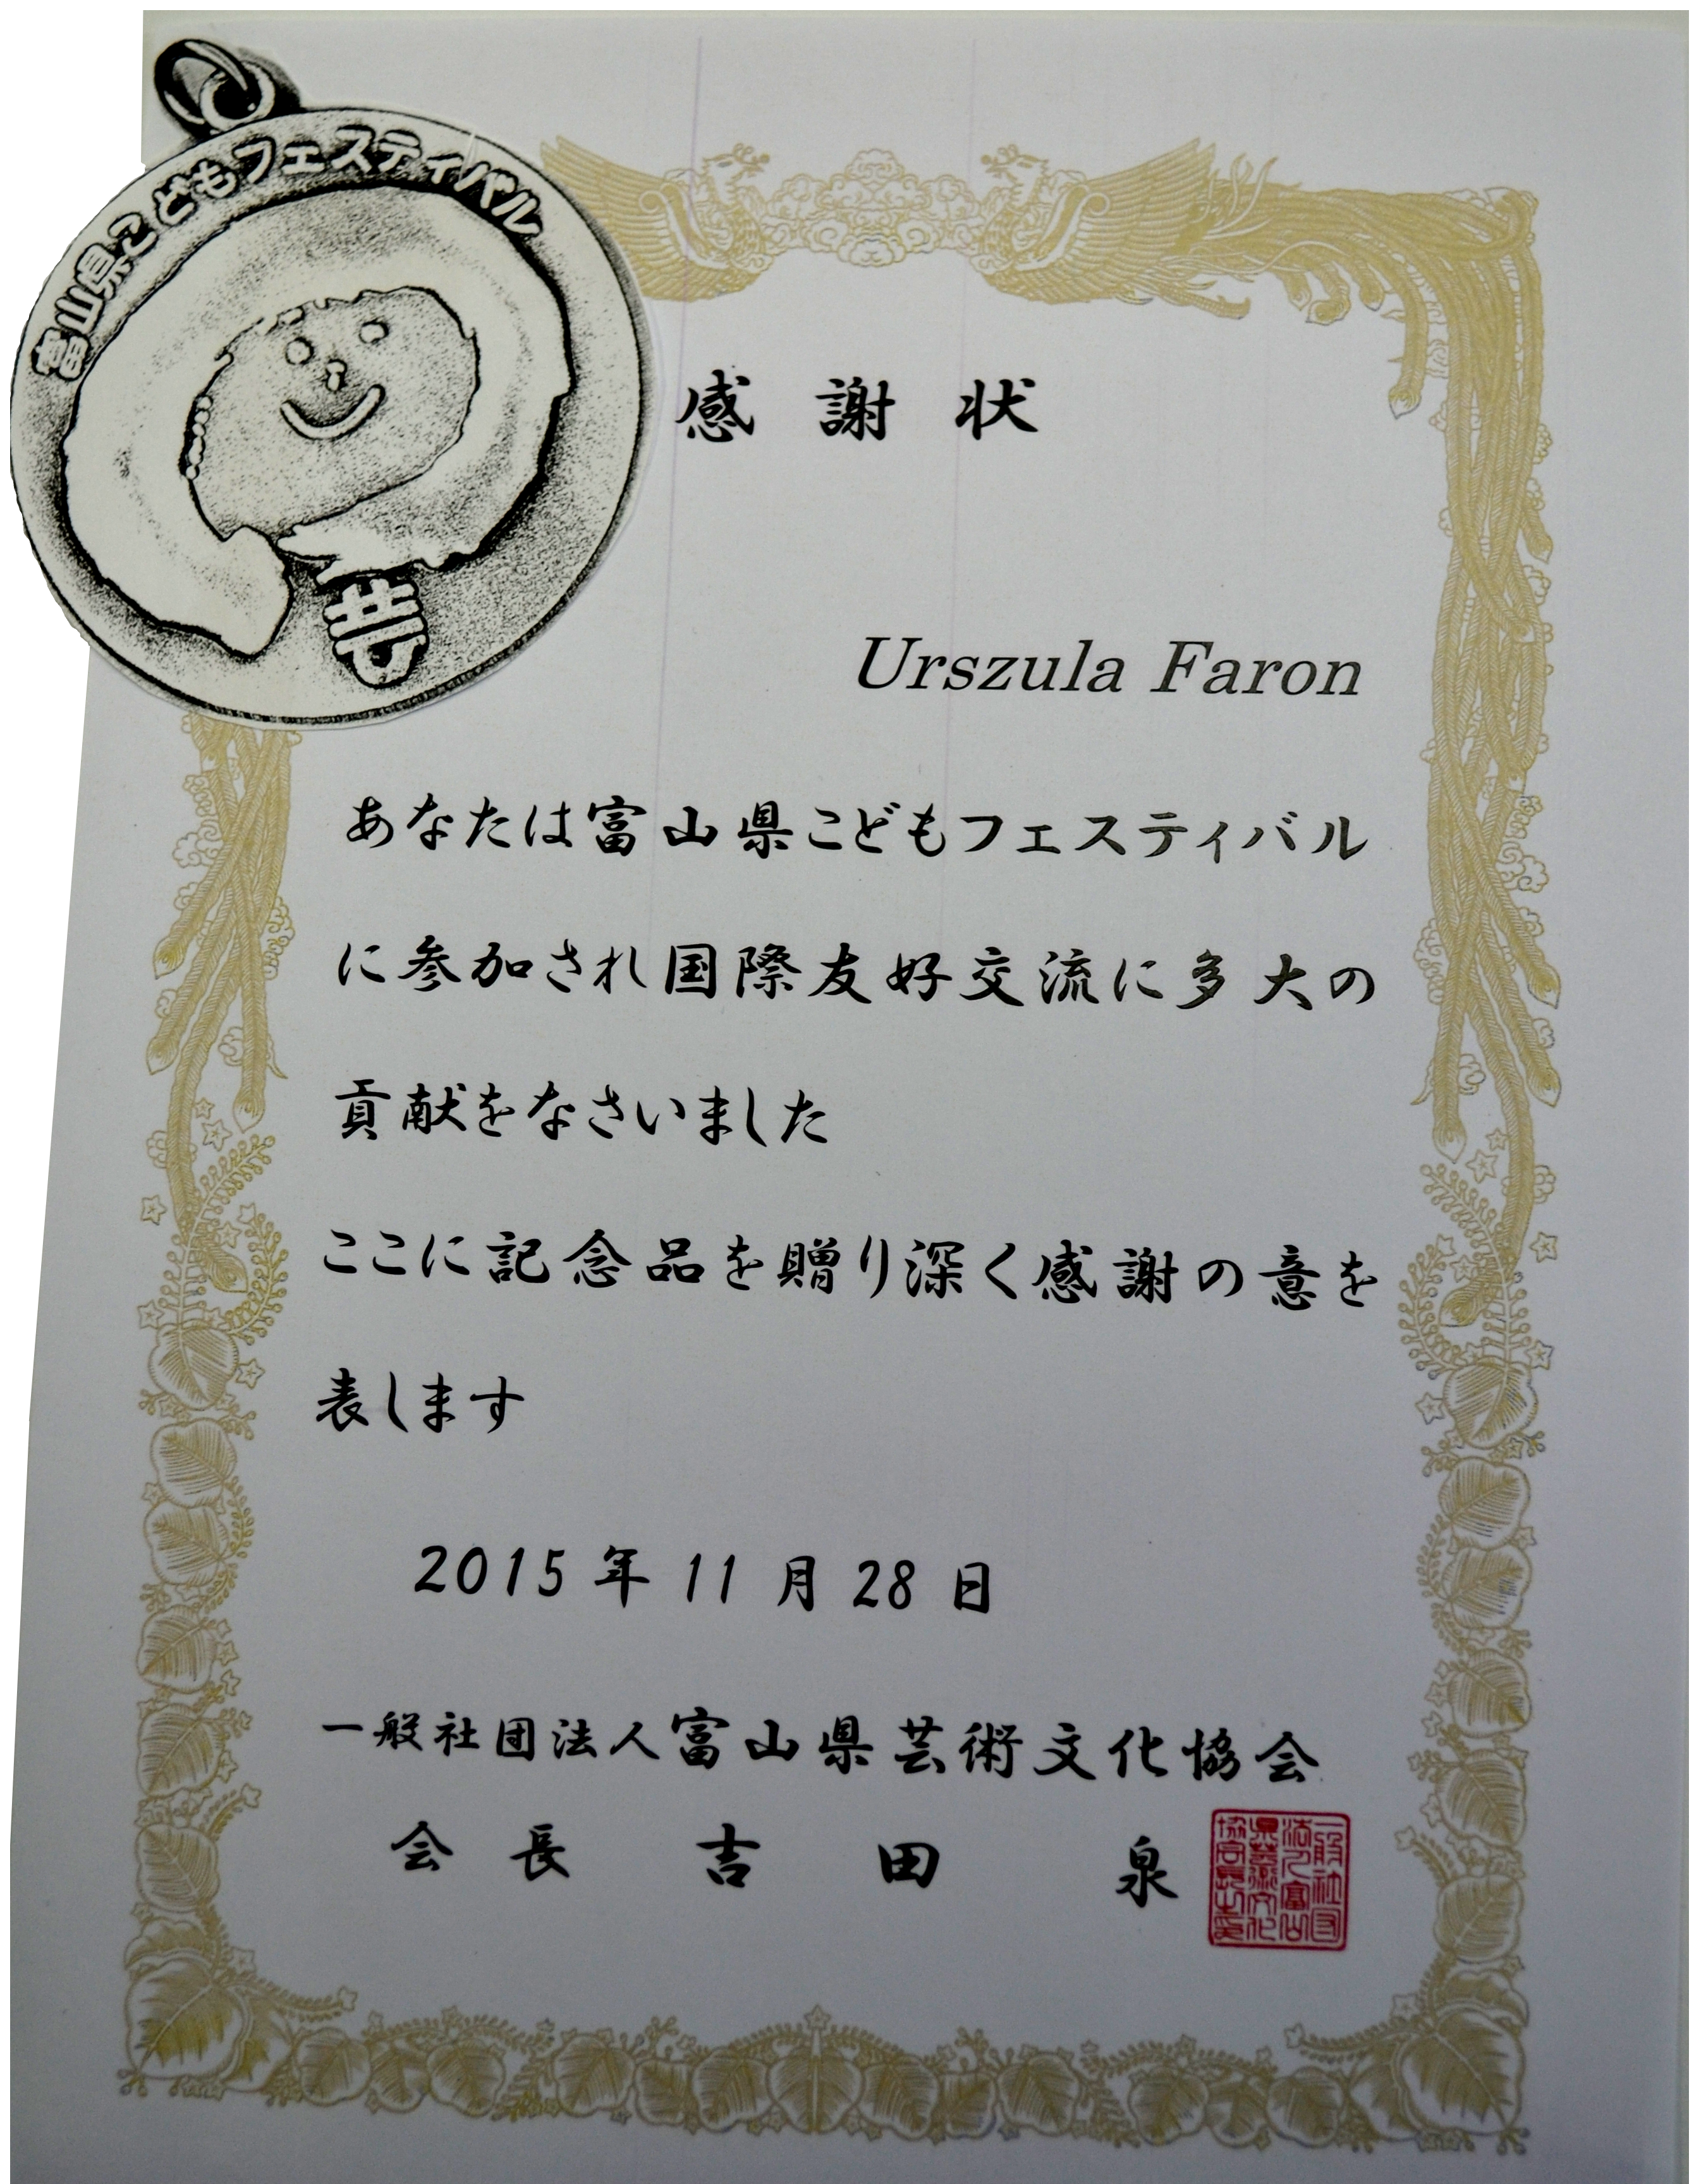 富山県こどもフェスティバル
感謝状
Urszula Faron
あなたは富山県こどもフェスティバル
に参加され国際友好交流に多大の
貢献をなさいました
ここに記念品を贈り深く感謝の意を
表します
2015年11月28日
一般社団法人富山県芸術文化協会
会長 吉田 泉